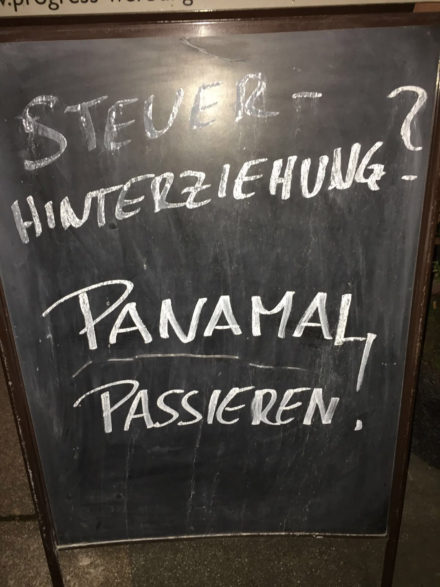 w.progress-werbung
STEUER-
HINTERZIEHUNG?
PANAMAL
PASSIEREN!